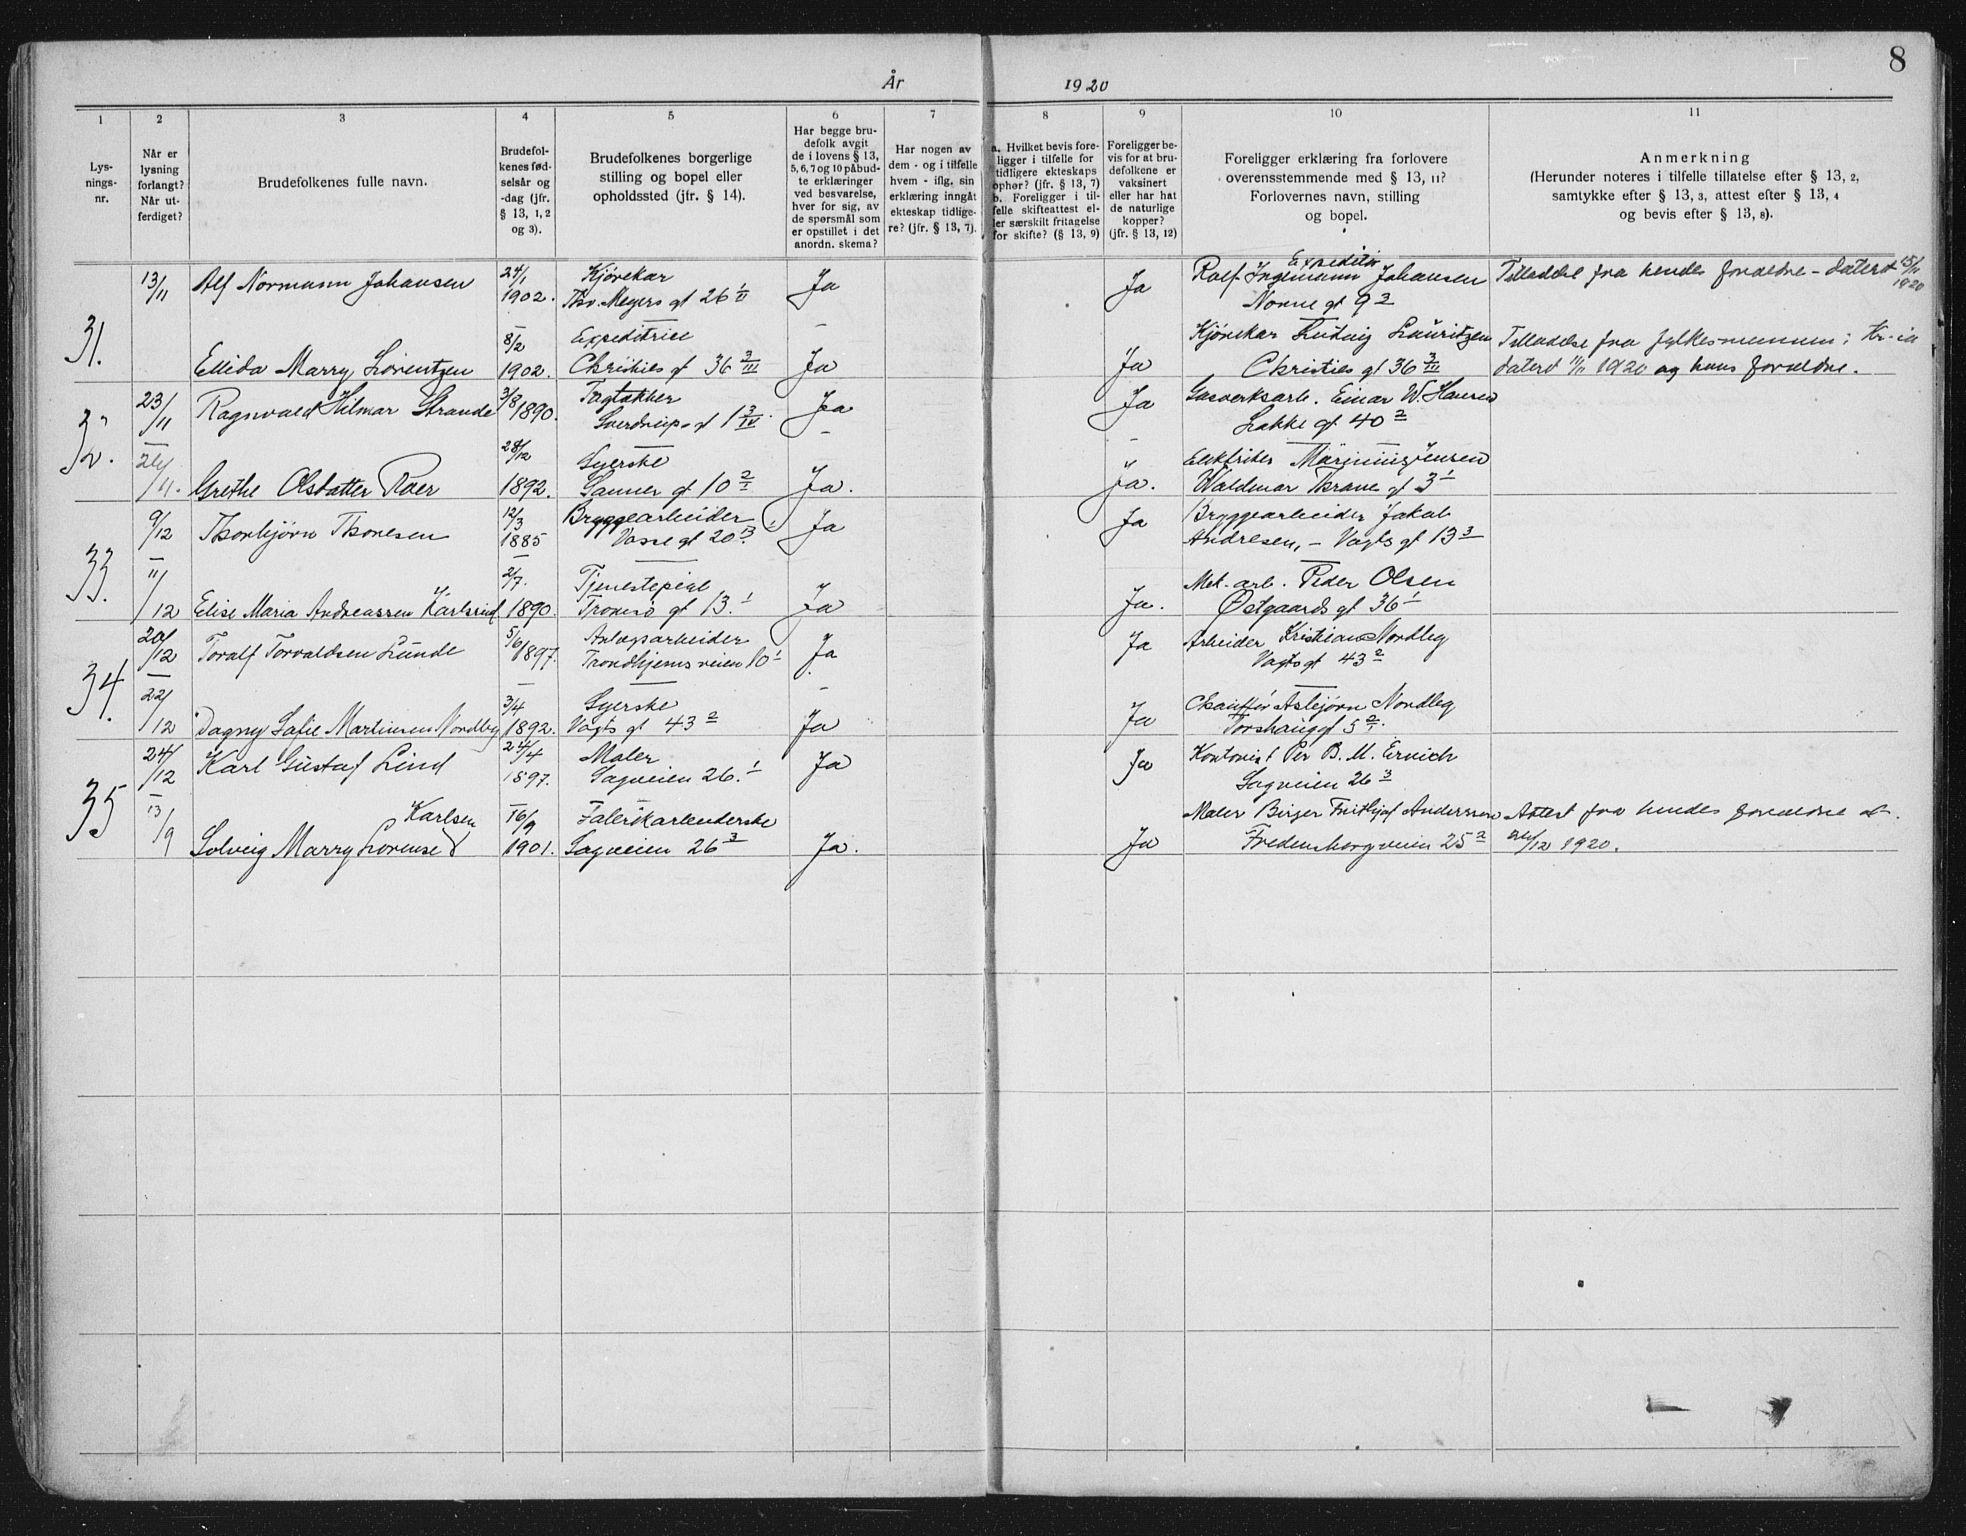 8
År 1920
1 2 3 4 5 6 7 8 9 10 11
Lys-
nings-
nr.
Når er
lysning
forlangt?
Når ut-
ferdiget?
Brudefolkenes fulle navn.
Brudefol-
kenes fød-
selsår og
-dag (jfr.
§ 13, 1, 2
og 3).
Brudefolkenes borgerlige
stilling og bopel eller
opholdssted (jfr. § 14).
Har begge bru-
defolk avgit
de i lovens § 13,
5, 6, 7 og 10 påbud-
te erklæringer
ved besvarelse,
hver for sig, av
de spørsmål som
er opstillet i det
anordn. skema?
Har nogen av
dem - og i tilfelle
hvem - iflg. sin
erklæring inngåt
ekteskap tidlige-
re? (jfr. § 13, 7).
a. Hvilket bevis fore-
ligger i tilfelle for
tidligere ekteskaps
ophør? (jfr. § 13, 7)
b. Foreligger i til-
felle skifteattest el-
ler særskilt fritagelse
for skifte? (§ 13, 9)
Foreligger be-
vis for at bru-
defolkene er
vaksinert
eller har hat
de naturlige
kopper?
(jfr. § 13, 12)
Foreligger erklæring fra forlovere
overensstemmende med § 13, 11?
Forlovernes navn, stilling
og bopel.
Anmerkning
(Herunder noteres i tilfelle tillatelse efter § 13, 2,
samtykke efter § 13, 3, attest efter § 13, 4
og bevis efter § 13, 8).
31.
13/11 Alf Normann Johansen 24/1 1902. Kjørekar Ja Ja Expeditør
Thv. Meyers gt 26 1/II Ralf Ingemann Johansen
Nonne gt 9 3
Tilladelse fra hendes foreldre - datert 15/11 1920
Ellida Marry Lorentzen 8/2 1902. Expeditrice Ja Ja Kjørekar Ludvig Lauritzen
Christies gt 36 3/III Christies gt 36 3/III
Tilladelse fra fylkesmannen i Kr.ia
datert 11/11 1920 og hans foreldre.
32.
23/11 Ragnvald Hilmar Strande 3/8 1890. Tagtækker Ja Ja Gasverksarb. Einar W. Hansen
Sverdrups gt 1 3/IV Lakke gt 40 2
Grethe Olsdatter Roer 28/12 1892. Syerske Ja. Ja.
Sanner gt 10 2/I Waldemar Thrane gt 3 1
33.
9/12 Thorbjørn Thoresen 12/3 1885 Bryggearbeider Ja Ja Bryggearbeider Jakob
Vosse gt 20 3. Andresen, - Vogts gt 13 3
11/12 Elise Maria Andreassen Karlsrud 2/7. 1890. Tjenestepige Ja Ja. Mek. arb. Peder Olsen
Tromsø gt 13. 1 Østgaards gt 36 1
34.
20/12 Toralf Torvaldsen Lunde 5/6 1897. Anlægsarbeider Ja Ja Arbeider Kristian Nordby
Trondhjemsveien 10 1 Vogts gt 43 2
22/12 Dagny Sofie Martinsen Nordby 3/4 1892. Syerske Ja Ja Chauffør Asbjørn Nordby
Vogts gt 43 2 Torshauggt 5 2.
35
24/12 Karl Gustaf Lind 24/4 1897. Maler Ja Ja Kontorist Per B. M. Ervich
Sagveien 26. 1 Sagveien 26 3
13/9 Solveig Marry Lorense Karlsen 16/9 1901. Ja. Ja Maler Birger Frithjof Andersen
Sagveien 26 3 Fredensborgveien 25 2
Attest fra hendes foreldre dt.
24/12 1920.